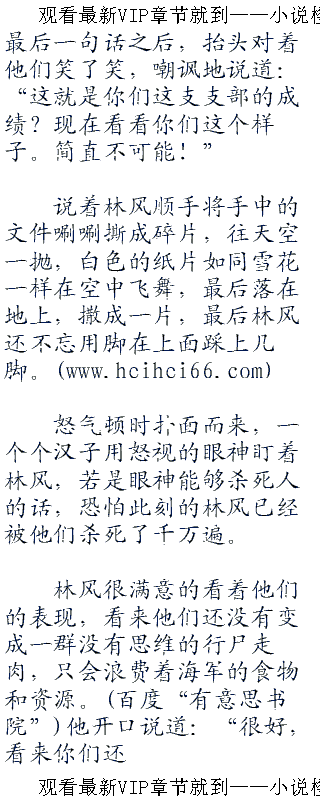 观看最新VIP章节就到——小说检
最后一句话之后，抬头对着
他们笑了笑，嘲讽地说道：
“这就是你们这支支部的成
绩？现在看看你们这个样
子。简直不可能！”
说着林风顺手将手中的
文件唰唰撕成碎片，往天空
一抛，白色的纸片如同雪花
一样在空中飞舞，最后落在
地上，撒成一片，最后林风
还不忘用脚在上面踩上几
脚。(www.hcihci66.com)
怒气顿时扑面而来，一
个个汉子用怒视的眼神盯着
林风，若是眼神能够杀死人
的话，恐怕此刻的林风已经
被他们杀死了千万遍。
林风很满意的看着他们
的表现，看来他们还没有变
成一群没有思维的行尸走
肉，只会浪费着海军的食物
和资源。(百度“有意思书
院”)他开口说道：“很好，
看来你们还
观看最新VIP章节就到——小说检